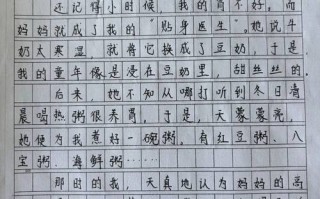 还记得小时候，我的胃不好。而
妈妈就成了我的“贴身医生”。她说牛
奶太寒湿，就将它换成了豆奶，于是，
我的童年像是浸在豆奶里，甜丝丝的。
后来，她不知从哪打听到冬日清
晨喝热粥很养胃，于是，天蒙蒙亮，
她便为我煮好一碗粥，有红豆粥、八
宝粥、海鲜粥……
那时的我，天真地认为妈妈的